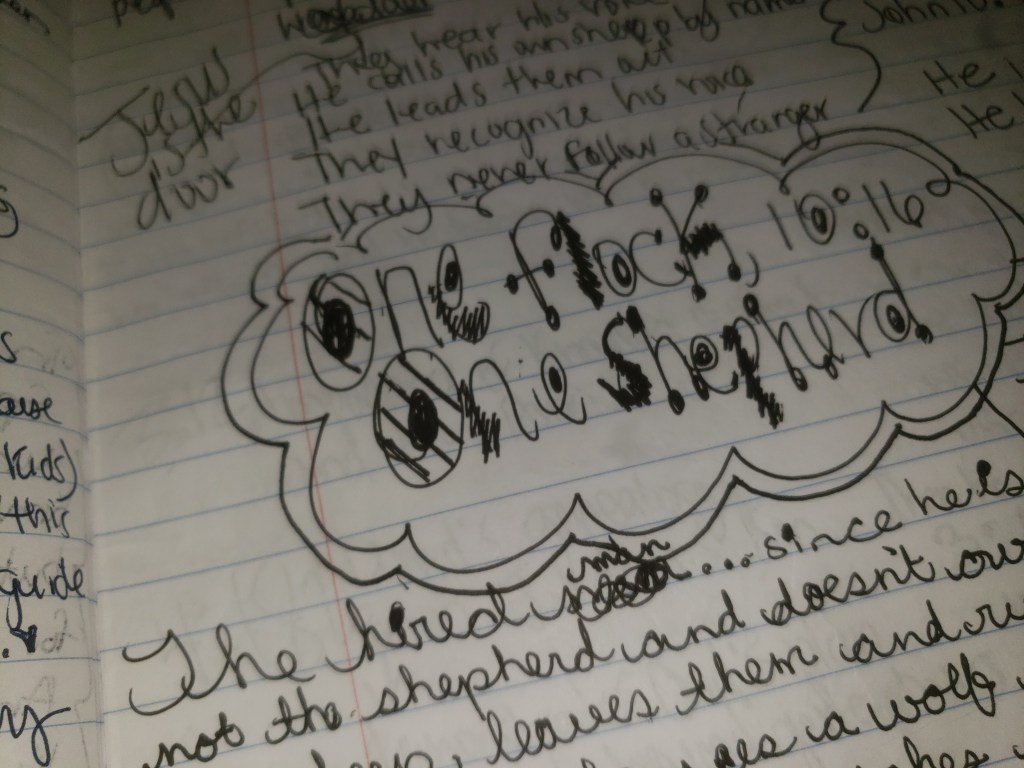 They hear his
John 10:
He calls his own sheep by name
He leads them out
Jesus is the door
They recognize his voice
They never follow a stranger
He
He
One flock, 10:16
One shepherd
The hired man ... since he is
not the shepherd and doesn't
leaves them and
a wolf
kids)
this
guide